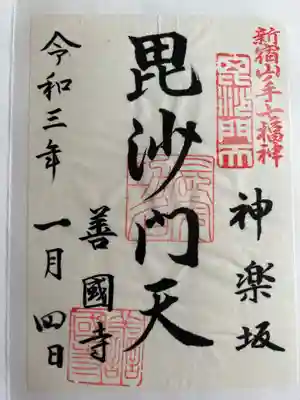 新宿山ノ手七福神
毘沙門天
神楽坂
毘沙門天
善國寺
令和三年
一月四日